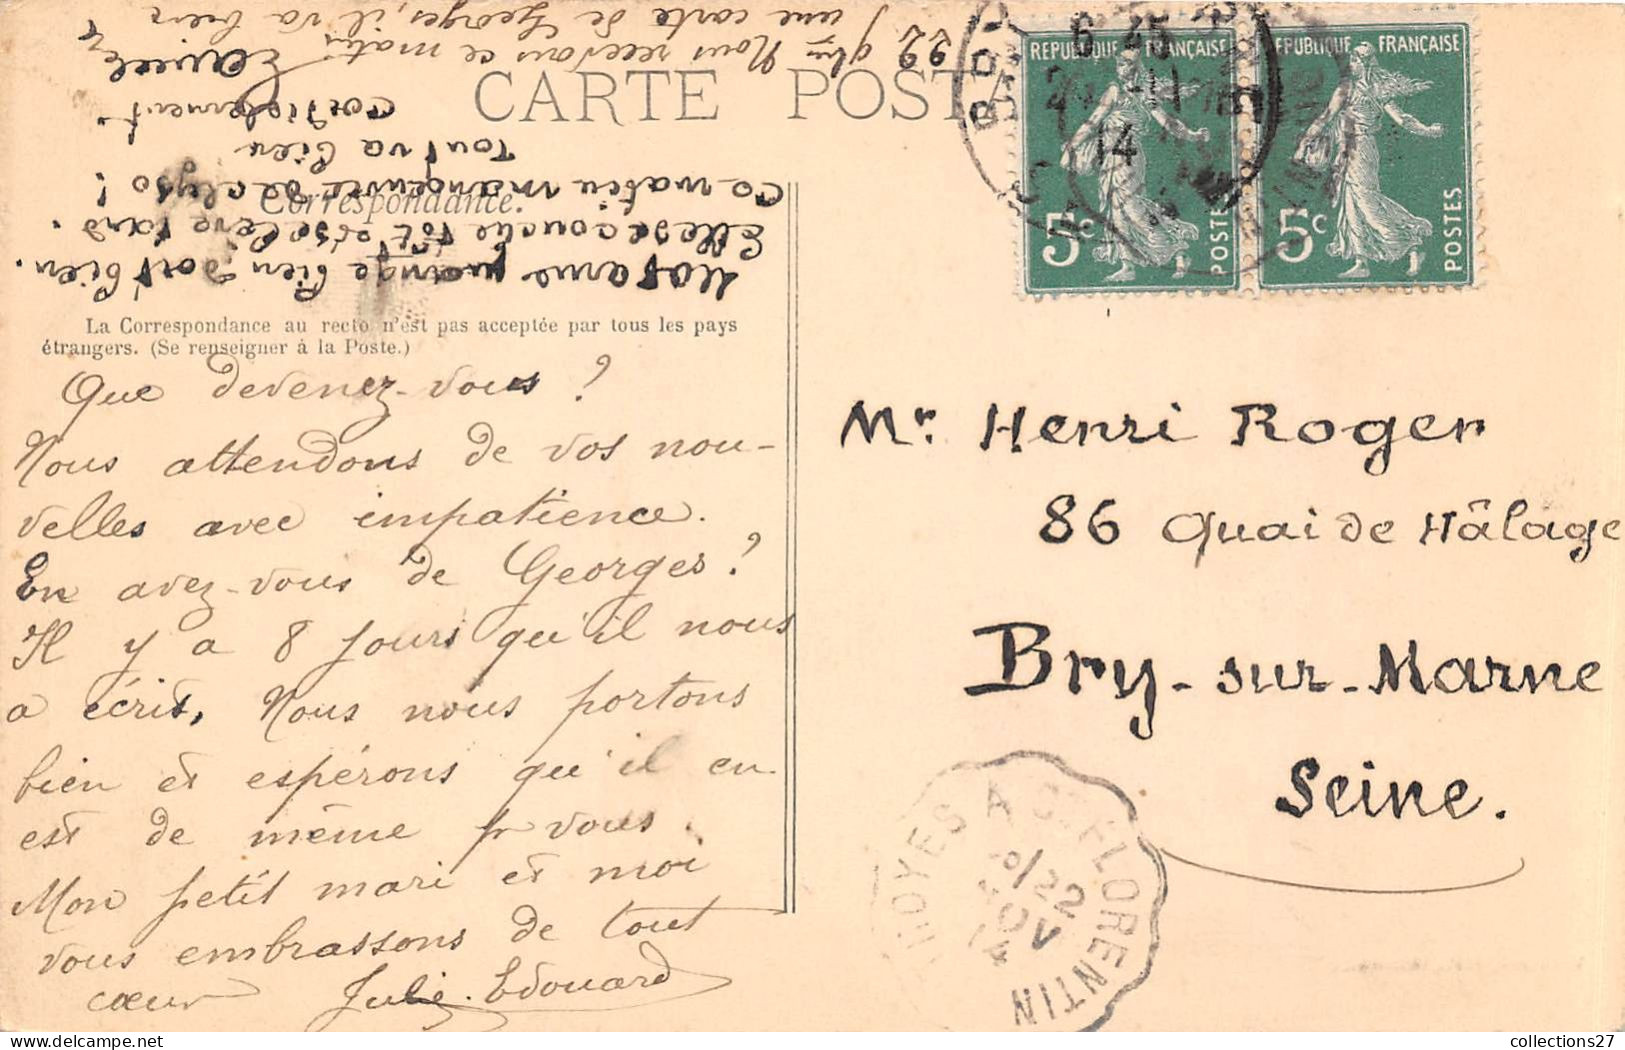 CARTE POSTA
Correspondance.
La Correspondance au recto n'est pas acceptée par tous les pays
étrangers. (Se renseigner à la Poste.)
Que devenez-vous ?
Nous attendons de vos nou-
velles avec impatience.
En avez-vous de Georges ?
Il y a 8 jours qu'il nous
a écrit, Nous nous portons
bien et espérons qu'il en
est de même pr vous.
Mon petit mari et moi
vous embrassons de tout
cœur Julie. Edouard
Madame mange bien dort bien.
Elle se couche tôt et se lève tard.
Ce matin manœuvre de
Tout va bien
cordialement.
22 9bre Nous recevons ce matin
une carte de Georges, il va bien
REPUBLIQUE FRANÇAISE
5c
POSTES
REPUBLIQUE FRANÇAISE
5c
POSTES
6 45
14
Mr. Henri Roger
86 Quai de Hâlage
Bry-sur-Marne
Seine.
TROYES A ST FLORENTIN
22
NOV
14
collections27